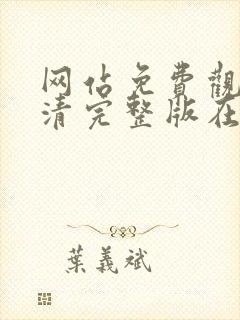 网佔免費觀
清完整版在
葉義斌